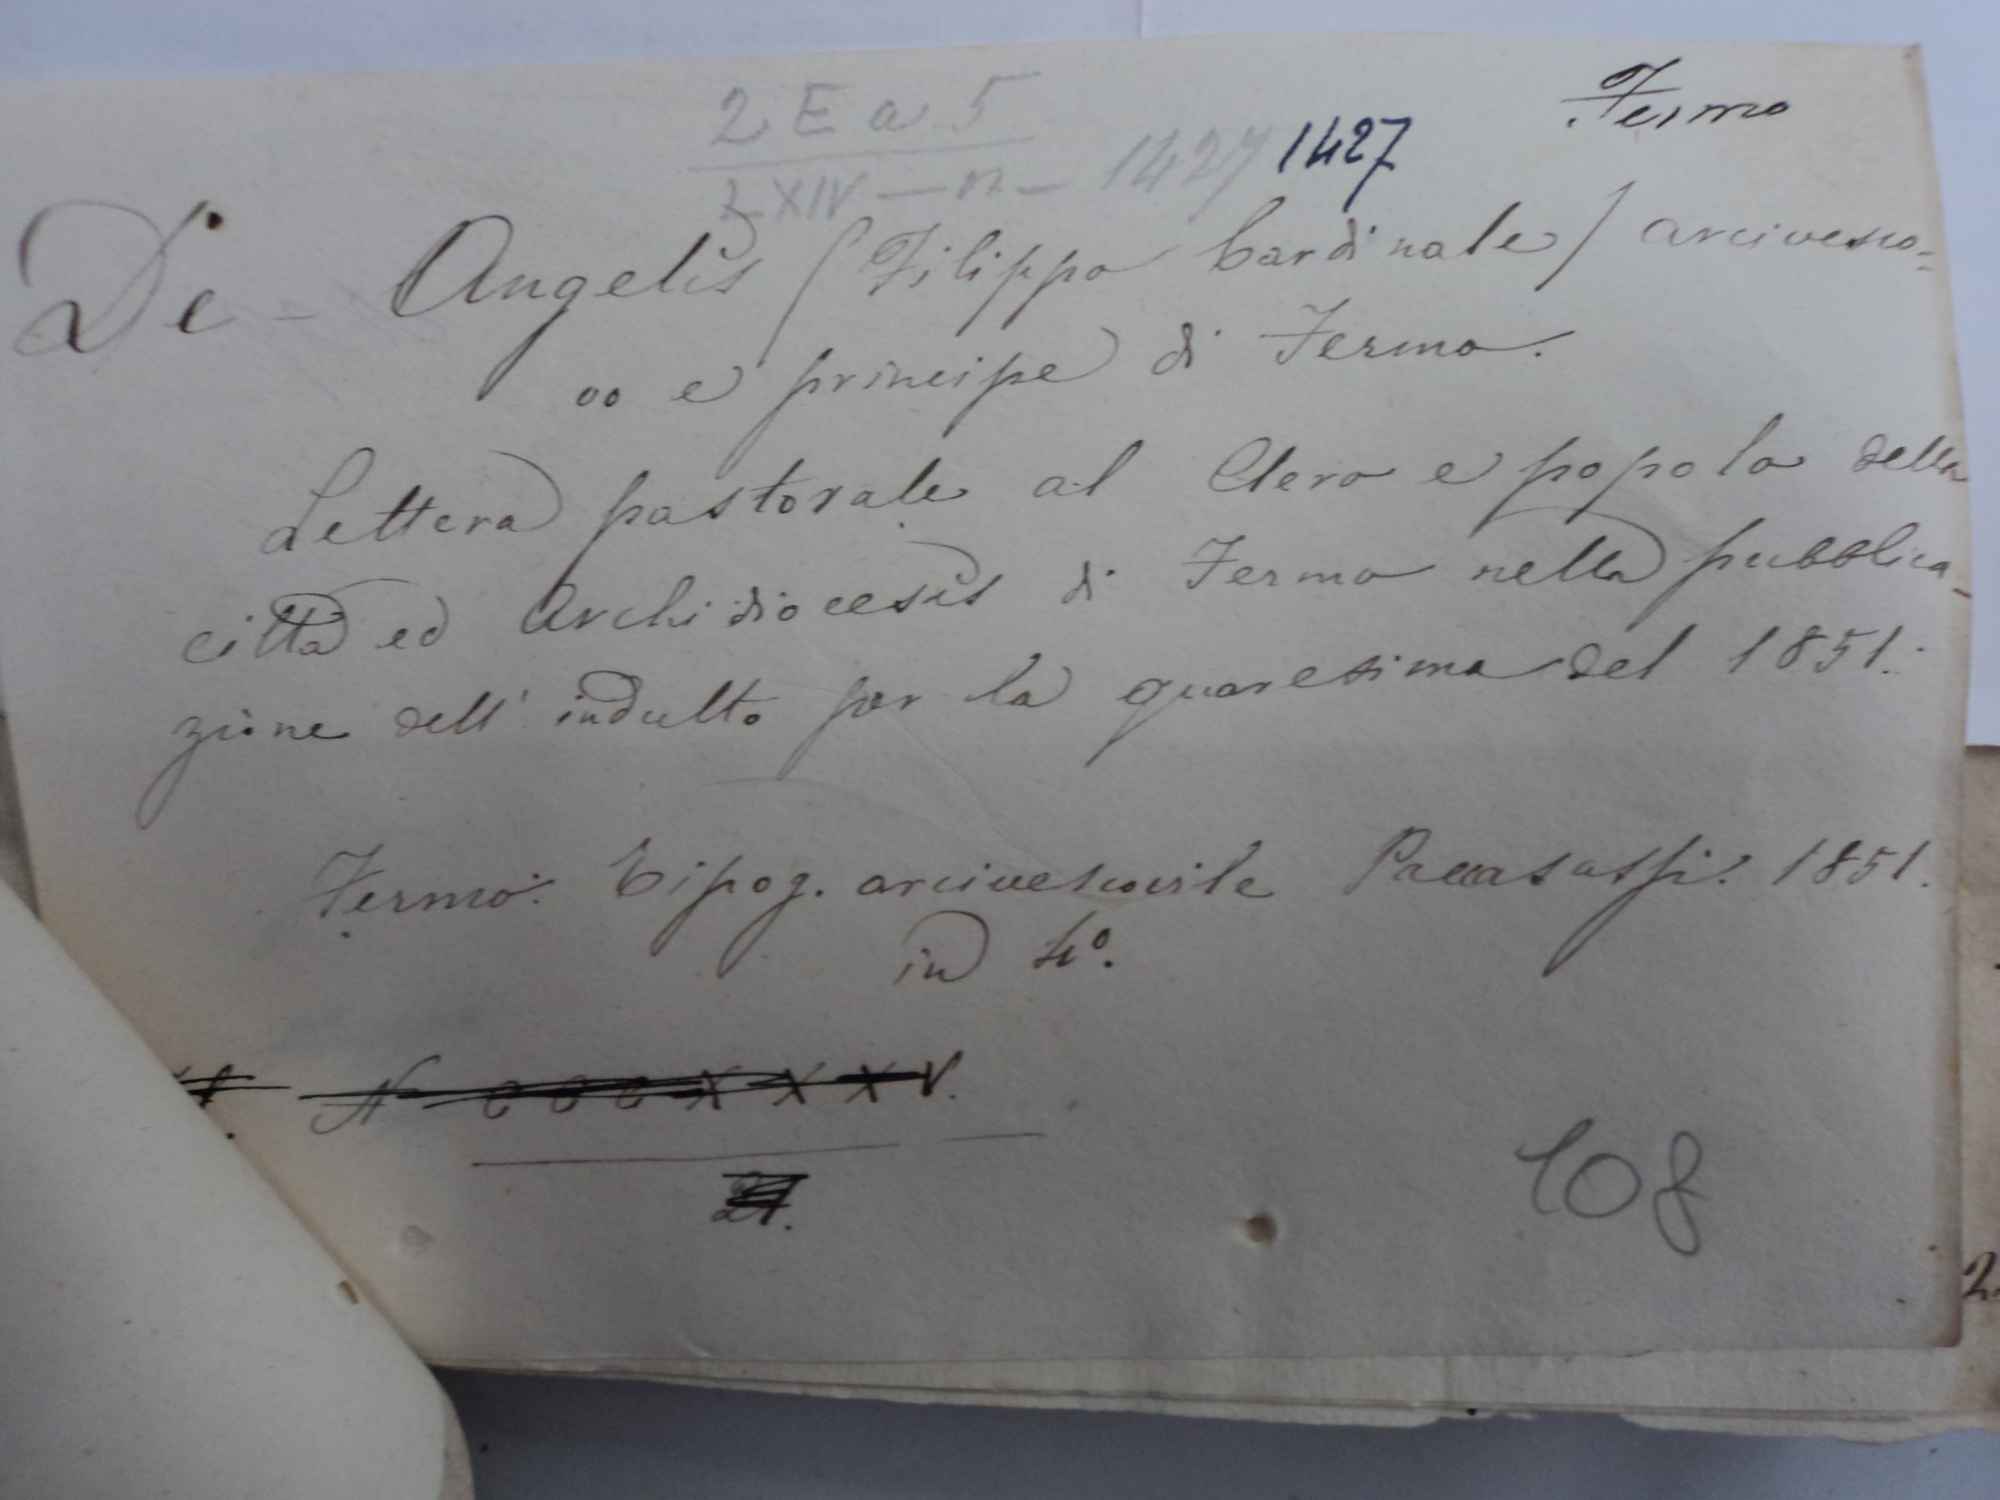 Fermo
2 E a 5
LXIV — n — 1427 1427
De - Angelis (Filippo Cardinale) arcivesco=
vo e principe di Fermo.
Lettera pastorale al Clero e popolo della
città ed Archidiocesis di Fermo nella pubblica-
zione dell' indulto per la quaresima del 1851.
Fermo: Tipog. arcivescovile Paccasassi. 1851.
in 4°.
N CCCXXXV.
27.
108
2.